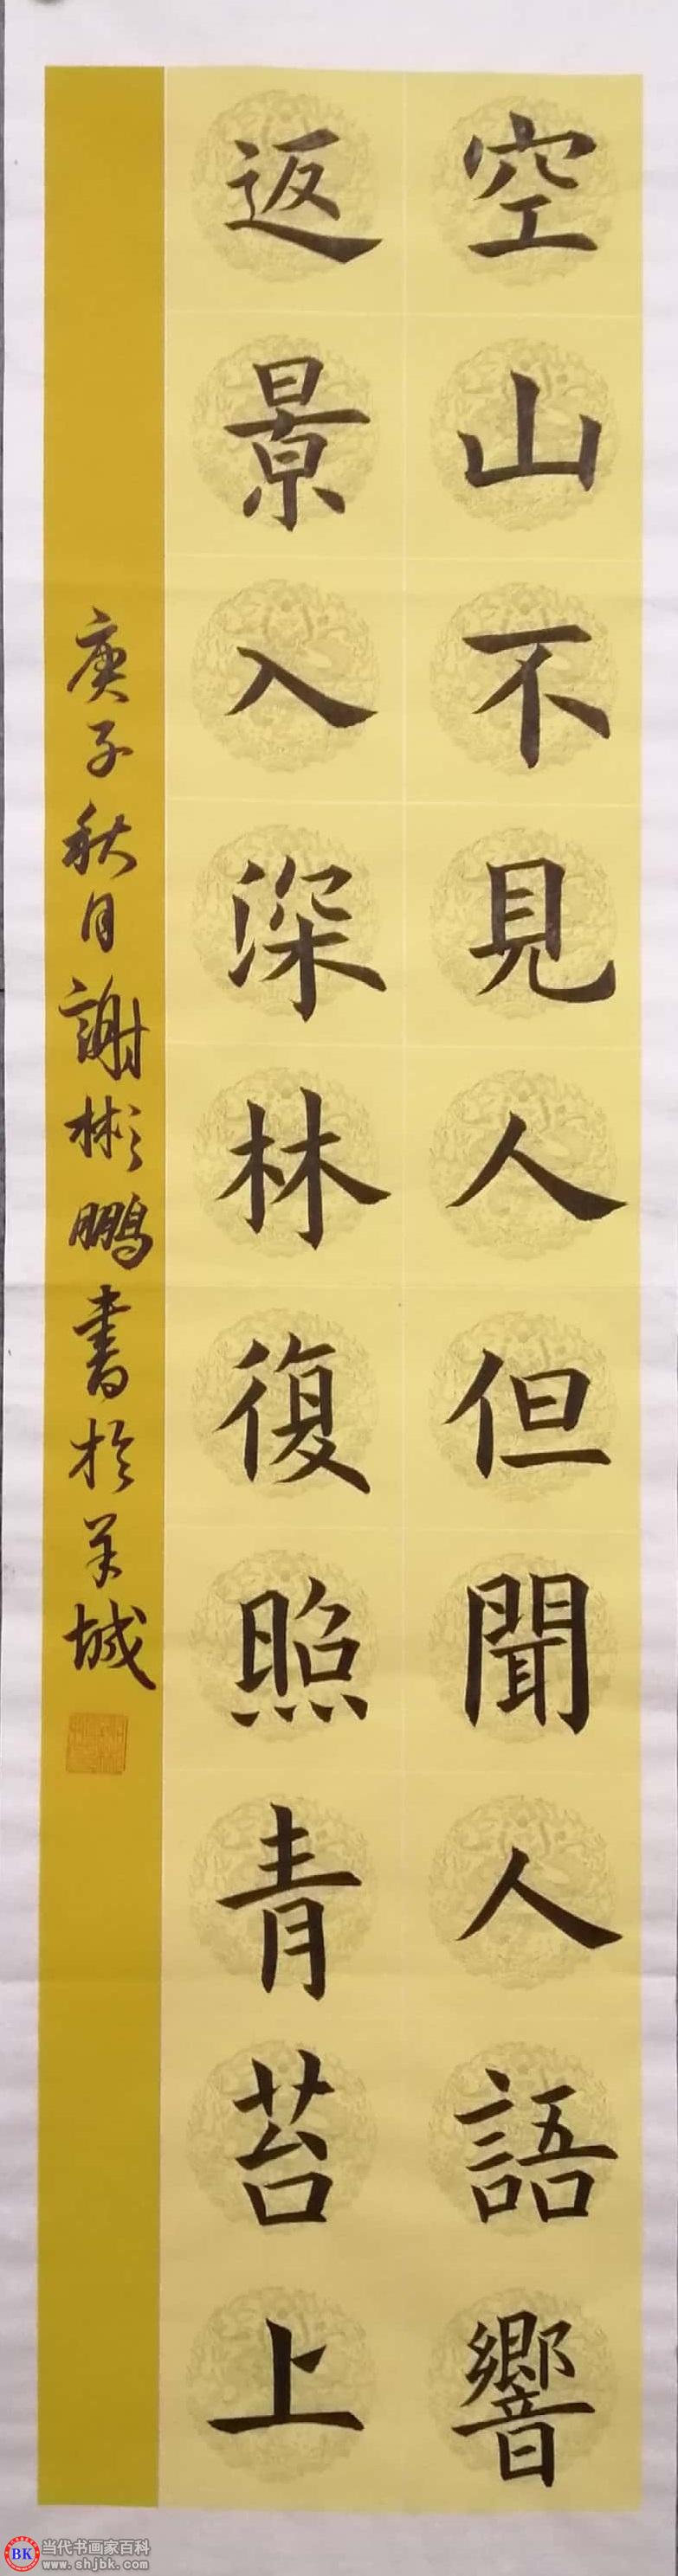 空山不見人但聞人語響
返景入深林復照青苔上
庚子秋月謝彬鵬書於羊城
BK 当代书画家百科
www.shjbk.com